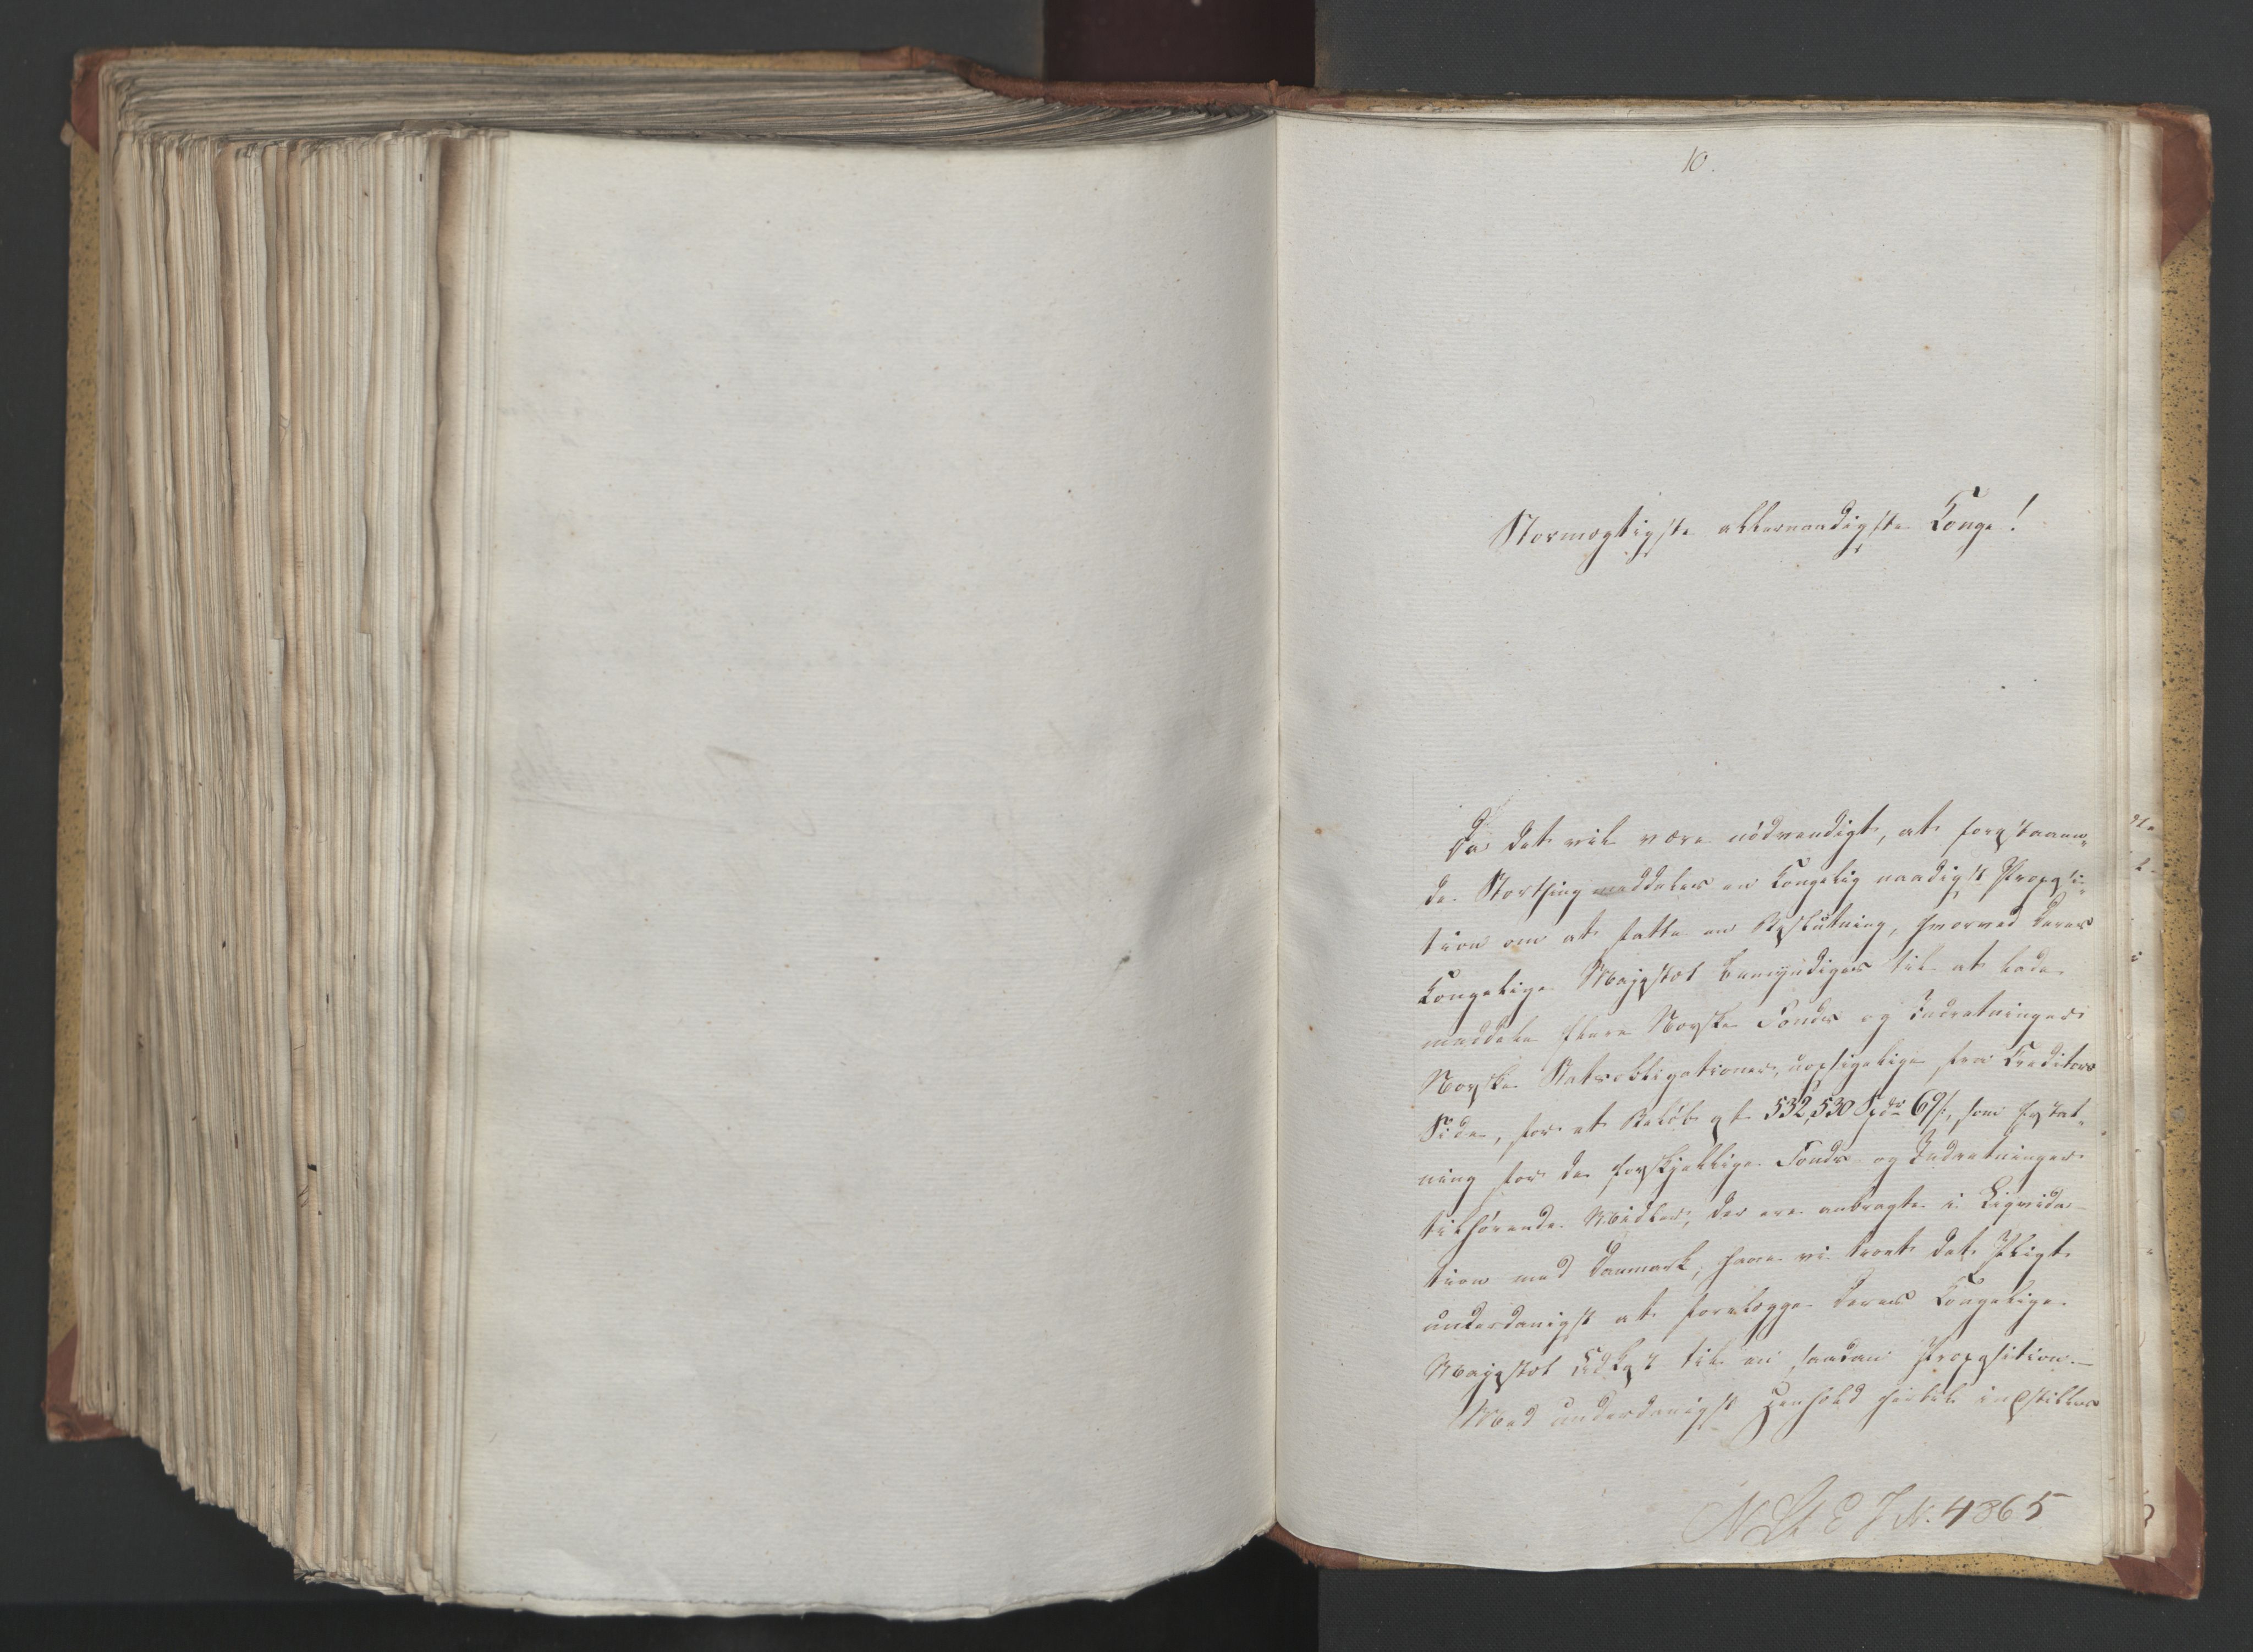 10.
Stormægtigste allernaadigste Konge!
Da det vil være nödvendigt, at forestaaen-
de Storthing meddeles en Kongelig naadigst Proposi-
tion om at fatte en Beslutning, hvorved Deres
Kongelige Majestæt bemyndiges til at lade
meddele flere Norske Fonds og Indretninger
Norske Statsobligationer, uopsigelige fra Creditors
Side, for et Beløb af 532,530 Spdr 69 s, som Erstat-
ning for de forskjellige Fonds og Indretninger
tilhørende Midler, der ere anbragte i Liqvida-
tion med Danmark, have vi troet det Pligt
underdanigst at forelægge Deres Kongelige
Majestæt Udkast til en saadan Proposition.—
Med underdanigst Henhold hertil indstilles
N St E J N. 4865